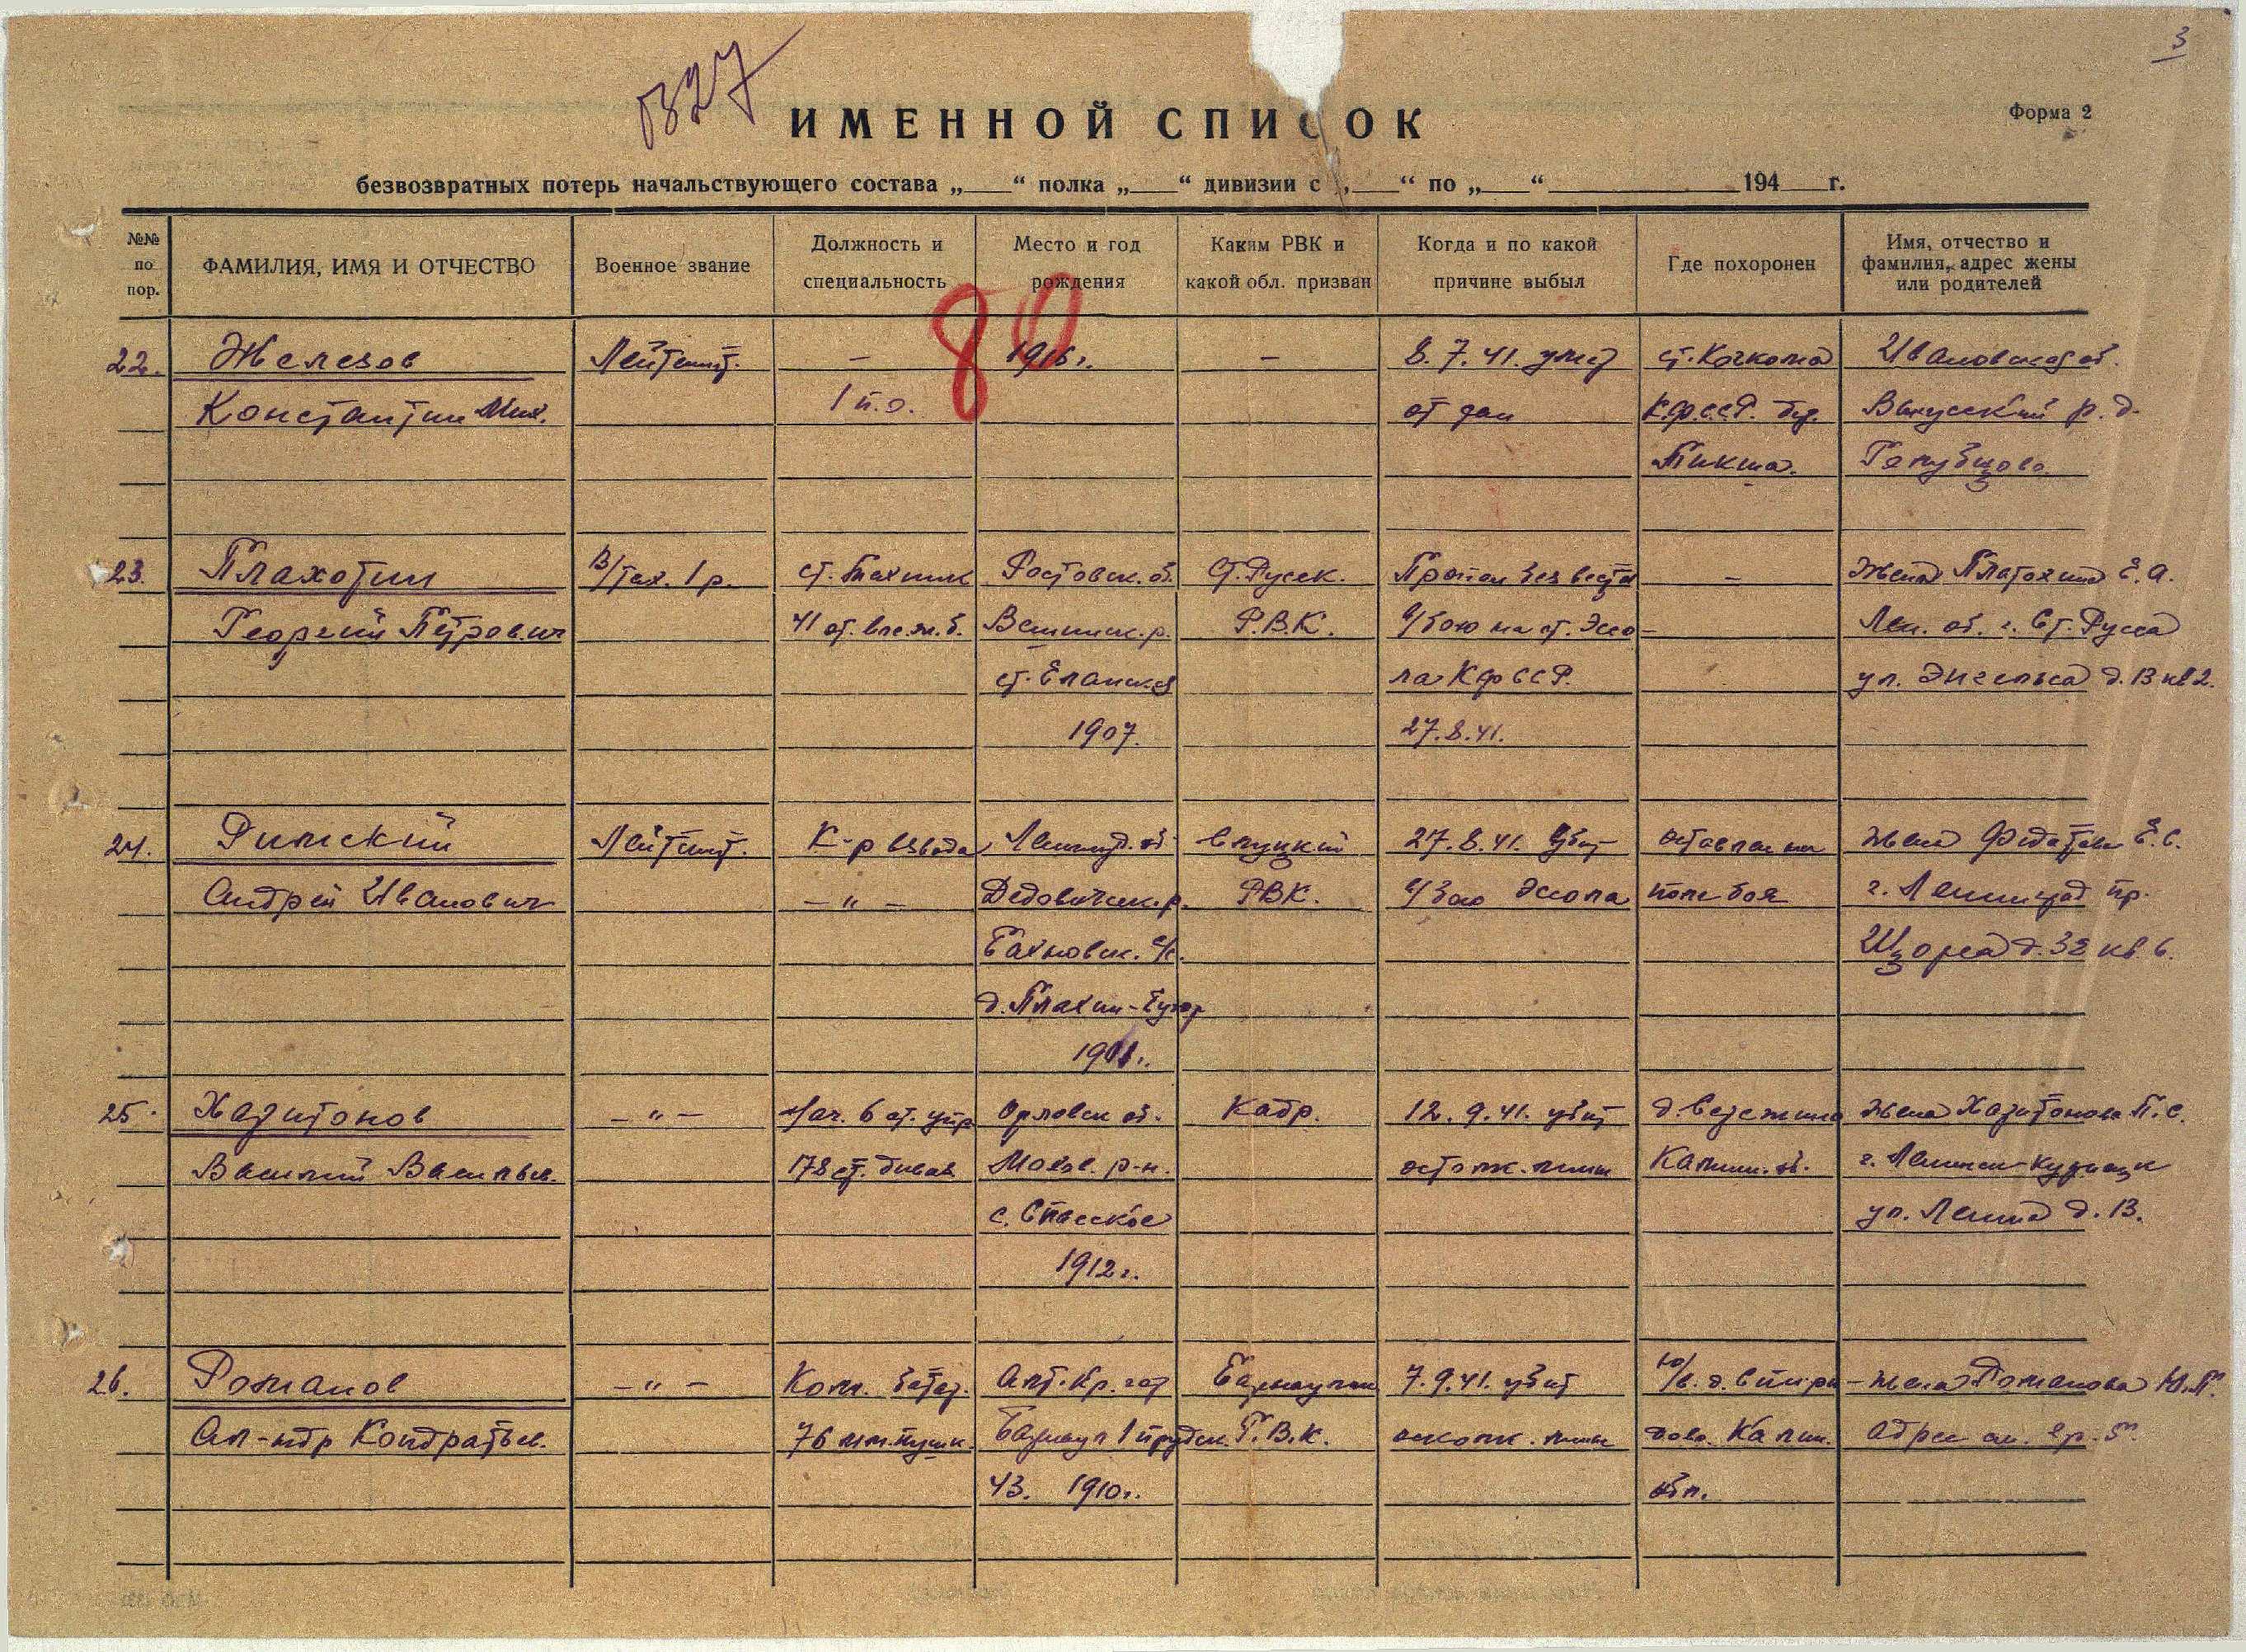 3
0327
ИМЕННОЙ СПИСОК
Форма 2
безвозвратных потерь начальствующего состава „___“ полка „___“ дивизии с „___“ по „___“ ______ 194__ г.
№№ по пор.
ФАМИЛИЯ, ИМЯ И ОТЧЕСТВО
Военное звание
Должность и специальность
Место и год рождения
Каким РВК и какой обл. призван
Когда и по какой причине выбыл
Где похоронен
Имя, отчество и фамилия, адрес жены или родителей
80
22. Железов Лейтент. – 1916 г. – 8.7.41. ст. Кочкома Ивановская об.
Константин Мих. 1 п.о. от ран К.ф.с.с.р. р.д.
Тикша. Голубцово
23. Плахотин В/тех. 1 р. ст. техник Ростовск. об. Ст. Русск. Пропал без вести – жена Е.А.
Георгий Петрович 41 от. Вешинск. р. Р.В.К. в/бою на ст. Эссо- Лен. об. г. Ст. Русса
ст. Еланская ла КфССР. ул. Энгельса д. 13 кв 2.
1907. 27.8.41.
24. Римский Лейтент. К-р взвода Ленингр. об. Слуцкий 27.8.41. Убит оставлен на жена Е.С.
Андрей Иванович – " – Дедовическ. р. РВК. в/бою Эссола поле боя г. Ленинград пр.
с/с. Щорса д. 32 кв. 6.
д. Плахин-Бугор
25. Харитонов – " – Нач. 6 от. упр. Орловск об. Кадр. 12.9.41. убит жена Харитонова П.С.
Василий Васильев. 178 ст. дивиз Мохов. р-н. осколк. мины Калин. об. г. Ленинск-Кузнецк
с. Спасское ул. Ленина д. 13.
1912 г.
26. Романов – " – Ком. батар. Алт. кр. гор Барнаульск 7.9.41. убит Ю/в. д. Спири- жена Романова Ю.П.
Ал-ндр Кондратьев. 76 мм. пушк. Барнаул 1 прудск. Г.В.К. осколк. мины дово. Калин. Адрес см. гр. 5.
43. 1910 г. обл.